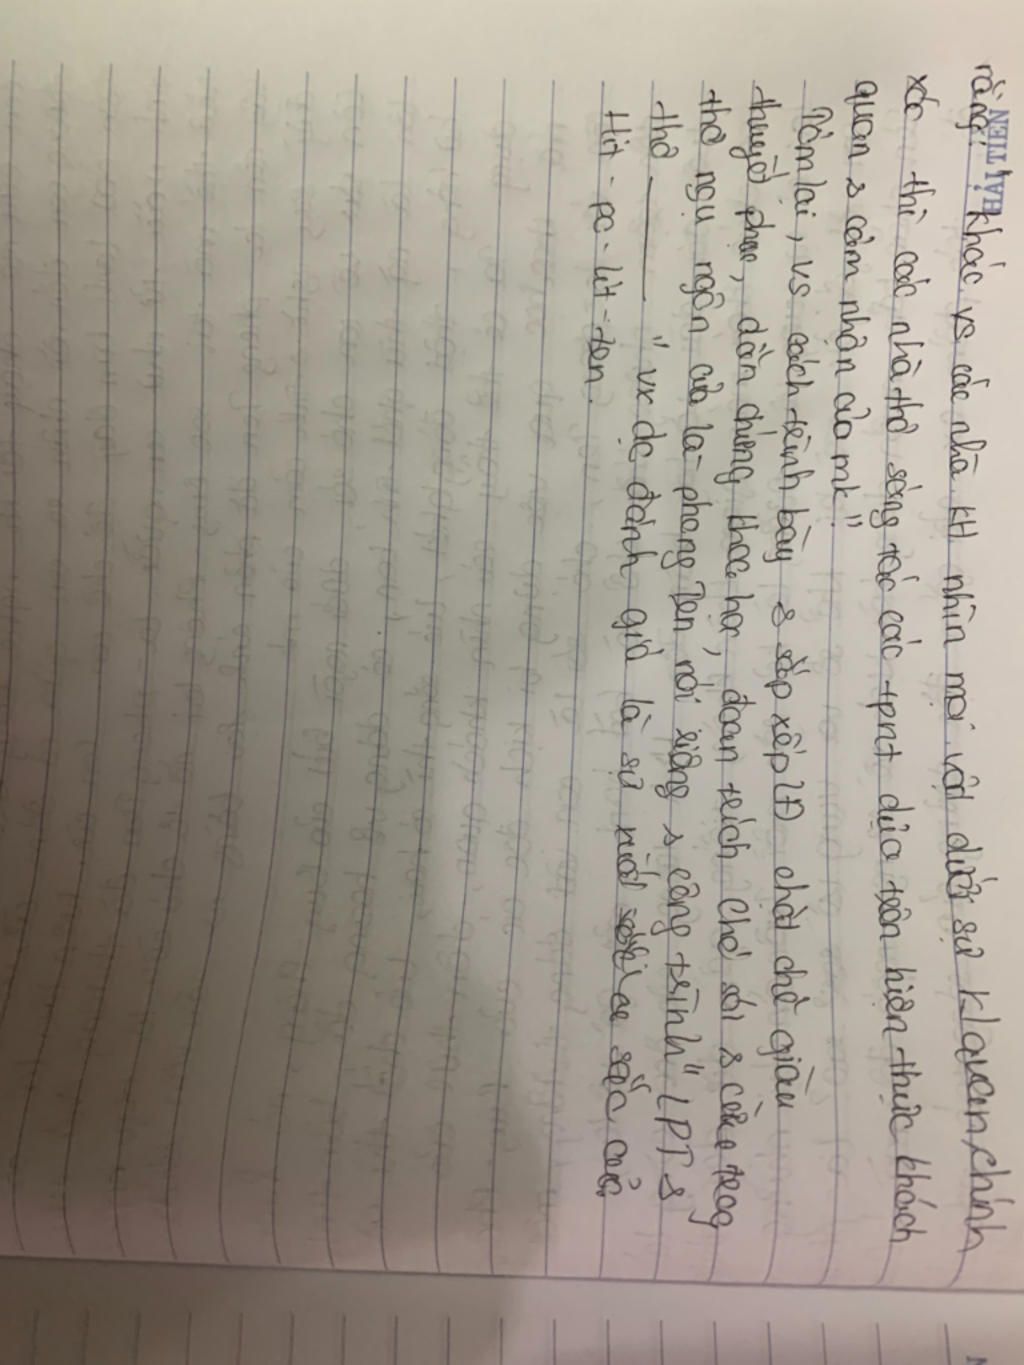 HẢI TIẾN
rằng: "khác vs các nhà KH nhìn mọi vật dưới sự klquan, chính
xác thì các nhà thơ sáng tác các tpnt dựa trên hiện thực khách
quan s cảm nhận của mk".
Tóm lại, vs cách trình bày s sắp xếp LĐ chặt chẽ giàu
thuyết phục, dẫn chứng khoa học, đoạn trích Chó sói s cừu trog
thơ ngụ ngôn của la-phong Ten nói riêng s công trình "LPT s
thơ ———" vx dc đánh giá là sự xuất sắc của
Hit-po-lit-ten.